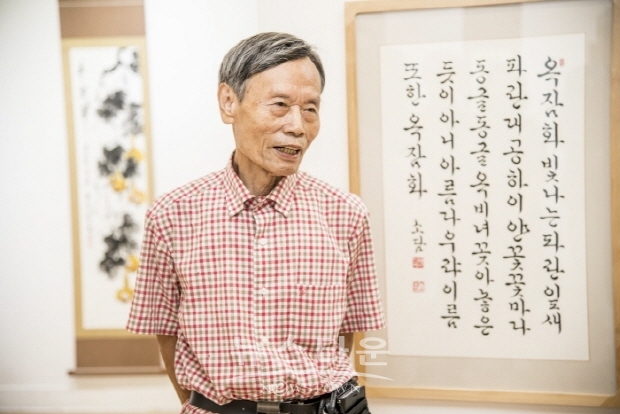 옥잠화 빛나는 파란잎새
파란대공 하이얀 꽃 꽃마다
동글동글 옥비녀 꽂아 놓은
듯이 아니 아름다우랴 이름
또한 옥잠화
소담
뉴스타운